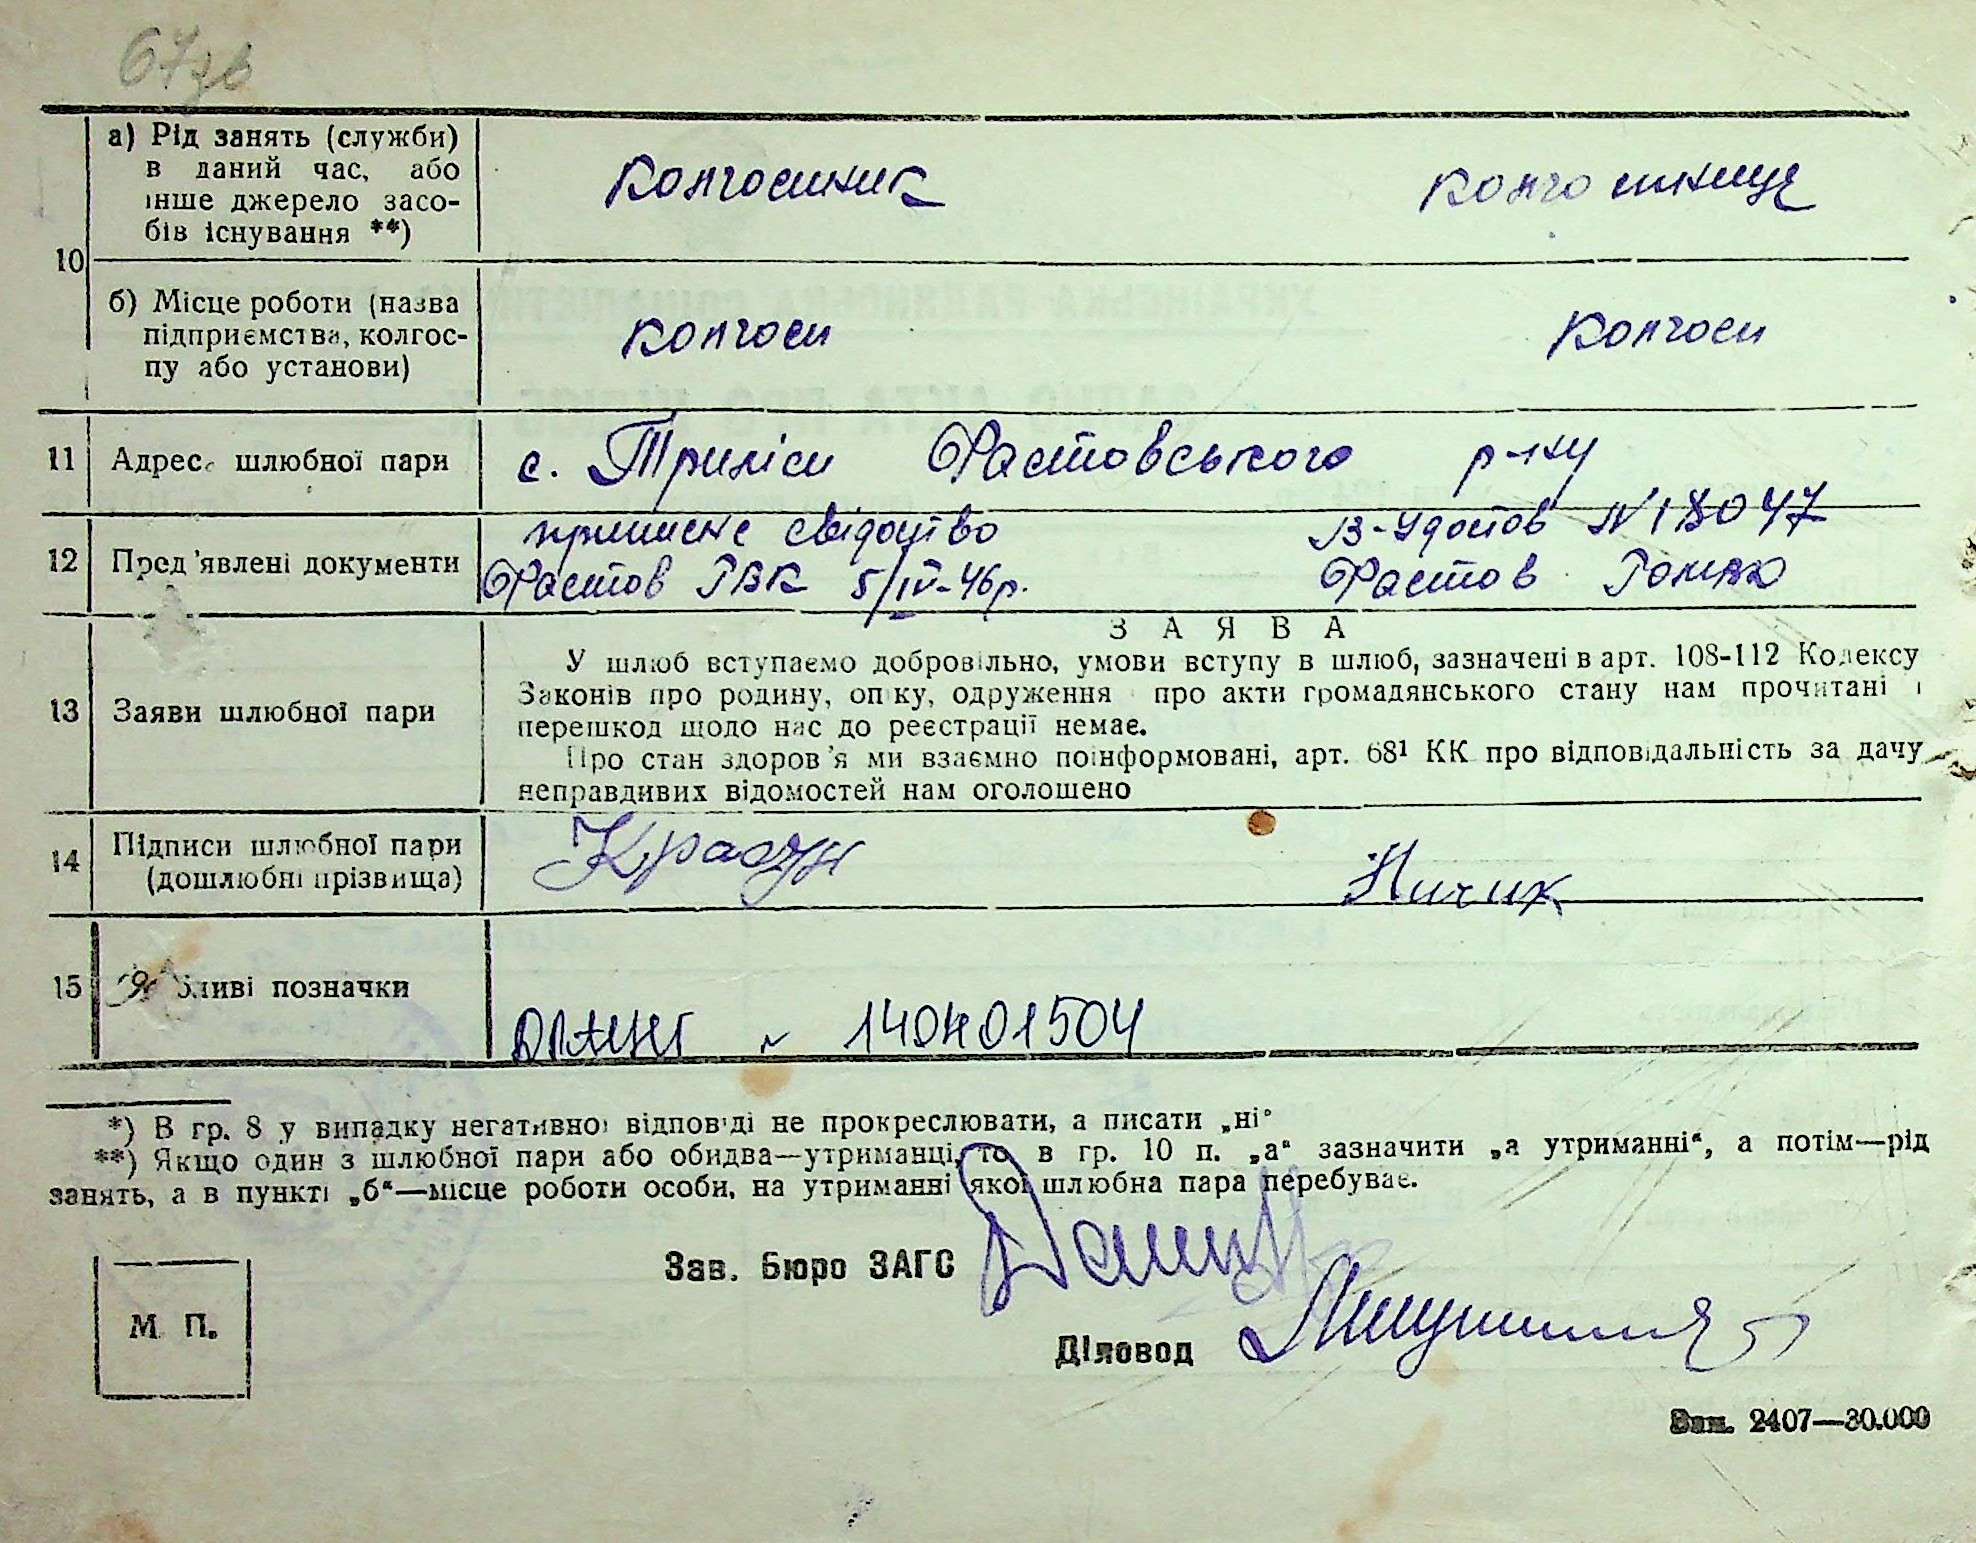 67зв
10
а) Рід занять (служби) в даний час, або інше джерело засобів існування **)
колгоспник
колгоспниця
б) Місце роботи (назва підприємства, колгоспу або установи)
колгосп
колгосп
11 Адреса шлюбної пари
с. Триліси Фастовського р-ну
12 Пред'явлені документи
приписне свідоцтво
Фастов РВК 5/IV-46р.
№ 18047
Фастов
13 Заяви шлюбної пари
ЗАЯВА
У шлюб вступаємо добровільно, умови вступу в шлюб, зазначені в арт. 108-112 Кодексу
Законів про родину, опіку, одруження про акти громадянського стану нам прочитані і
перешкод щодо нас до реєстрації немає.
Про стан здоров'я ми взаємно поінформовані, арт. 68¹ КК про відповідальність за дачу
неправдивих відомостей нам оголошено
14 Підписи шлюбної пари
(дошлюбні прізвища)
Кравун
Ничик
15 позначки
ДРАЦСГ 140401504
*) В гр. 8 у випадку негативної відповіді не прокреслювати, а писати „ні“
**) Якщо один з шлюбної пари або обидва—утриманці, то в гр. 10 п. „а“ зазначити „а утриманні“, а потім—рід
занять, а в пункті „б“—місце роботи особи, на утриманні якої шлюбна пара перебуває.
Зав. Бюро ЗАГС
Діловод
М. П.
Зам. 2407—30.000